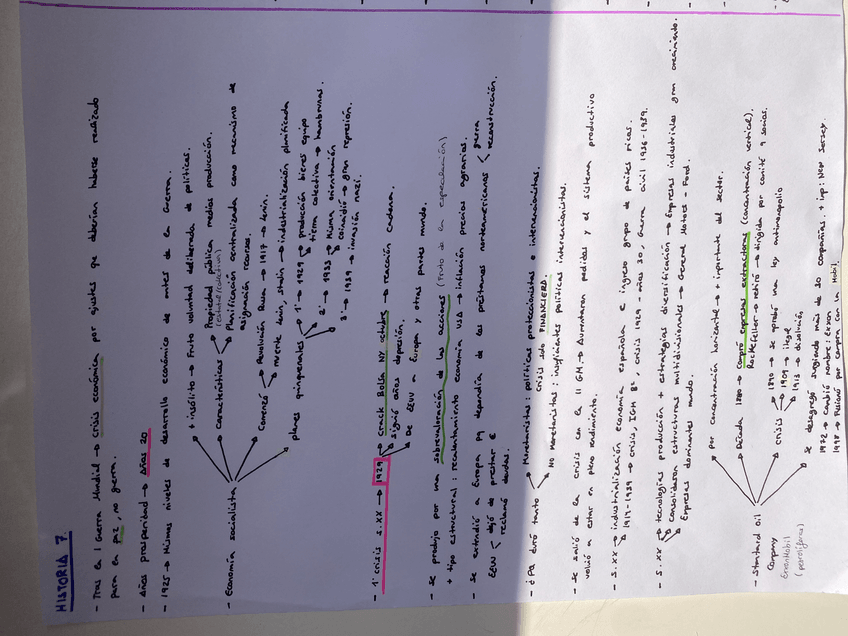 HISTORIA 7
- Tras la I Guerra Mundial → crisis económica por ajustes que deberían haberse realizado
para en paz, no guerra.
- Años prosperidad → Años 20
- 1925 → Mismos niveles de desarrollo económico de antes de la Guerra.
- Economía socialista
+ insólito → Fruto voluntad deliberada de políticas.
Características
Propiedad pública medios producción.
(estatal/colectiva)
Planificación centralizada como mecanismo de
asignación recursos.
Comenzó
Revolución Rusa → 1917 → Lenin.
Muerte Lenin, Stalin → industrialización planificada
planes quinquenales
1º → 1929 → producción bienes equipo
tierra colectiva → hambrunas.
2º → 1933 → Misma orientación
coincidió → gran represión.
3º → 1939 → invasión nazi.
- 1ª crisis S.XX → 1929
Crack Bolsa NY octubre → reacción cadena.
siguió años depresión.
De EEUU a Europa y otras partes mundo.
- Se produjo por una sobrevaloración de las acciones (Fruto de la especulación)
+ tipo estructural: recalentamiento economía USA → inflación precios agrarios.
- Se extendió a Europa pq dependía de los préstamos norteamericanos
guerra
reconstrucción.
EEUU
dejó de prestar €
reclamó deudas.
- ¿Pq duró tanto
Monetaristas: políticas proteccionistas o intervencionistas.
crisis solo FINANCIERA.
No Monetaristas: insuficientes políticas intervencionistas.
- Se salió de la crisis con la II GM → Aumentaron pedidos y el sistema productivo
volvió a estar en pleno rendimiento.
- S.XX
industrialización economía española e ingreso grupo de países ricos.
1914-1939 → crisis, IGM, crisis 1929 - años 30, Guerra civil 1936-1939.
- S.XX
tecnologías producción + estrategias diversificación → Empresas industriales gran crecimiento.
consolidaron estructuras multidivisionales → General Motors - Ford.
Empresas dominantes mundo.
- Standard Oil
Company
ExxonMobil
(petrolíferas)
por concentración horizontal → + importante del sector.
Década 1880 → compró empresas extractoras (concentración vertical).
Rockefeller → retiró → dirigida por comité 9 socios.
crisis
1890 → se aprobó una ley antimonopolio
1909 → ilegal
1913 → disolución
Se desagregó surgiendo más de 30 compañías. + imp: New Jersey
1972 → cambió nombre: Exxon
1998 → Fusionó por compra con la Mobil.